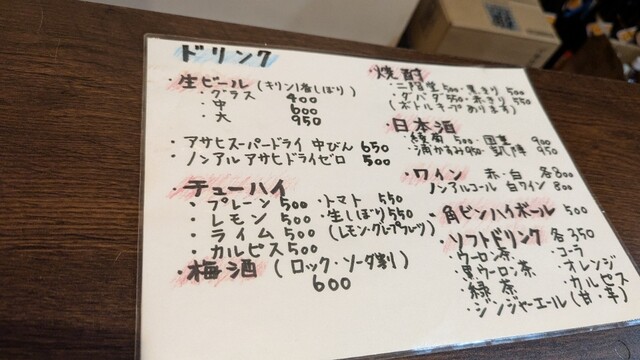 ドリンク
・生ビール (キリン1番しぼり)
・グラス 400
・中 600
・大 950
・アサヒスーパードライ 中びん 650
・ノンアルアサヒドライゼロ 500
・チューハイ
・プレーン 500 ・トマト 550
・レモン 500 ・生しぼり 550
・ライム 500 (レモン・グレープフルーツ)
・カルピス 500
・梅酒 (ロック・ソーダ割)
600
・焼酎
・二階堂 500・黒きり 500
・ダバダ 550・赤きり 550
(ボトルキープあります)
・日本酒
・綾菊 500・国重 900
・浦かすみ 950・凱陣 950
・ワイン 赤・白 各800
ノンアルコール 白ワイン 800
・角ビンハイボール 500
・ソフトドリンク 各350
・ウーロン茶 ・コーラ
・黒ウーロン茶 ・オレンジ
・緑茶 ・カルピス
・ジンジャーエール (甘・辛)